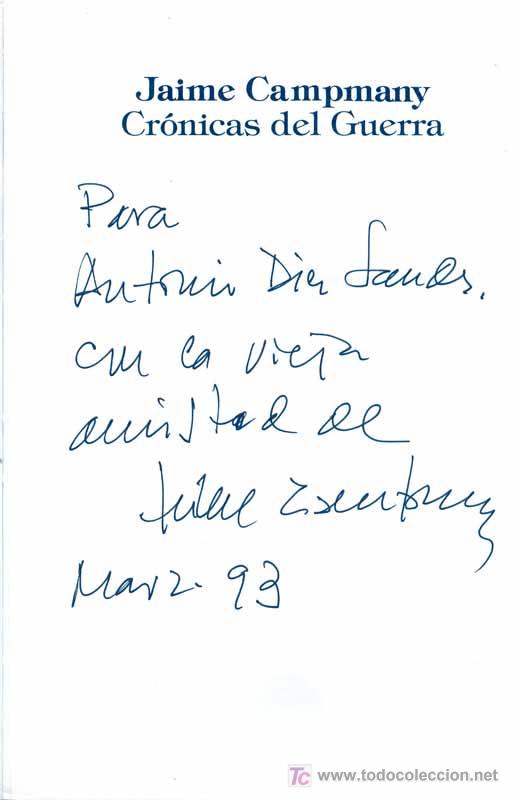 Jaime Campmany
Crónicas del Guerra
Para
Antonio Diez
con la vieja
amistad de
Marz. 93
TC www.todocoleccion.net